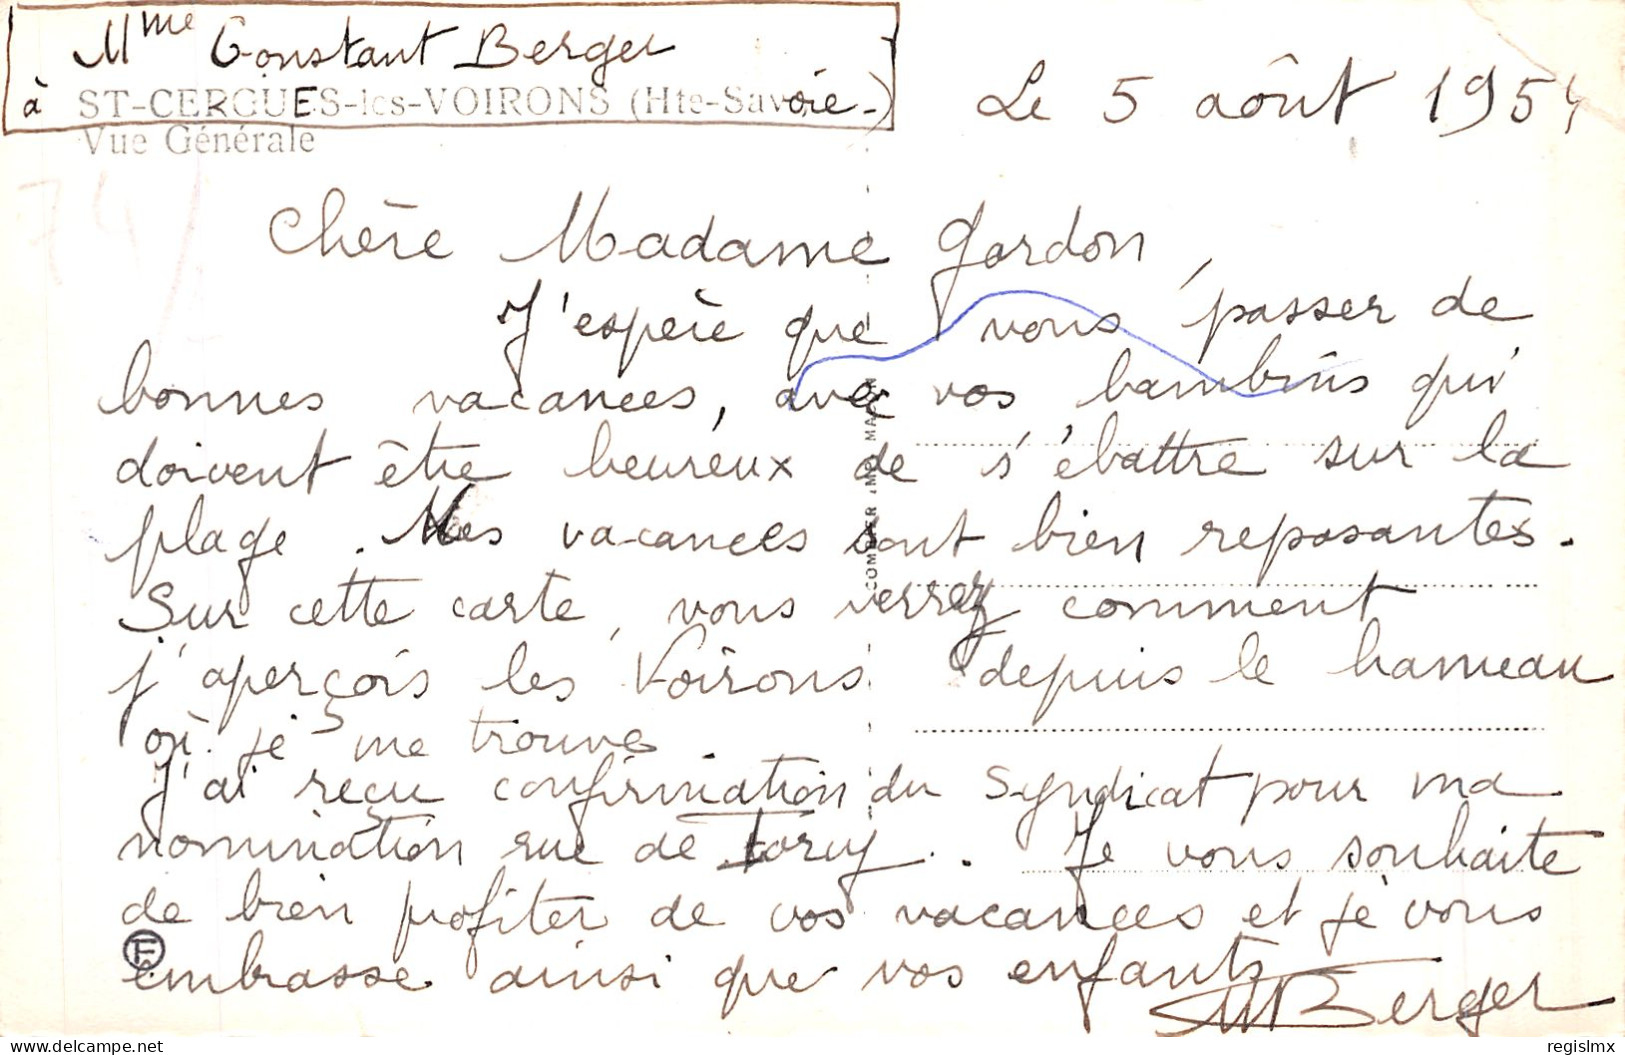 Mme Constant Berger
à ST-CERGUES-les-VOIRONS (Hte-Savoie-)
Vue Générale
74
Le 5 août 1954
Chère Madame Gordon,
J'espère que vous passer de
bonnes vacances, avec vos bambins qui
doivent être heureux de s'ébattre sur la
plage. Mes vacances sont bien reposantes.
Sur cette carte, vous verrez comment
j'aperçois les Voirons depuis le hameau
où je me trouve.
J'ai reçu confirmation du Syndicat pour ma
nomination rue de Torcy. Je vous souhaite
de bien profiter de vos vacances et je vous
embrasse ainsi que vos enfants
MBerger
COMBIER IMP. MACON
www.delcampe.net
regislmx